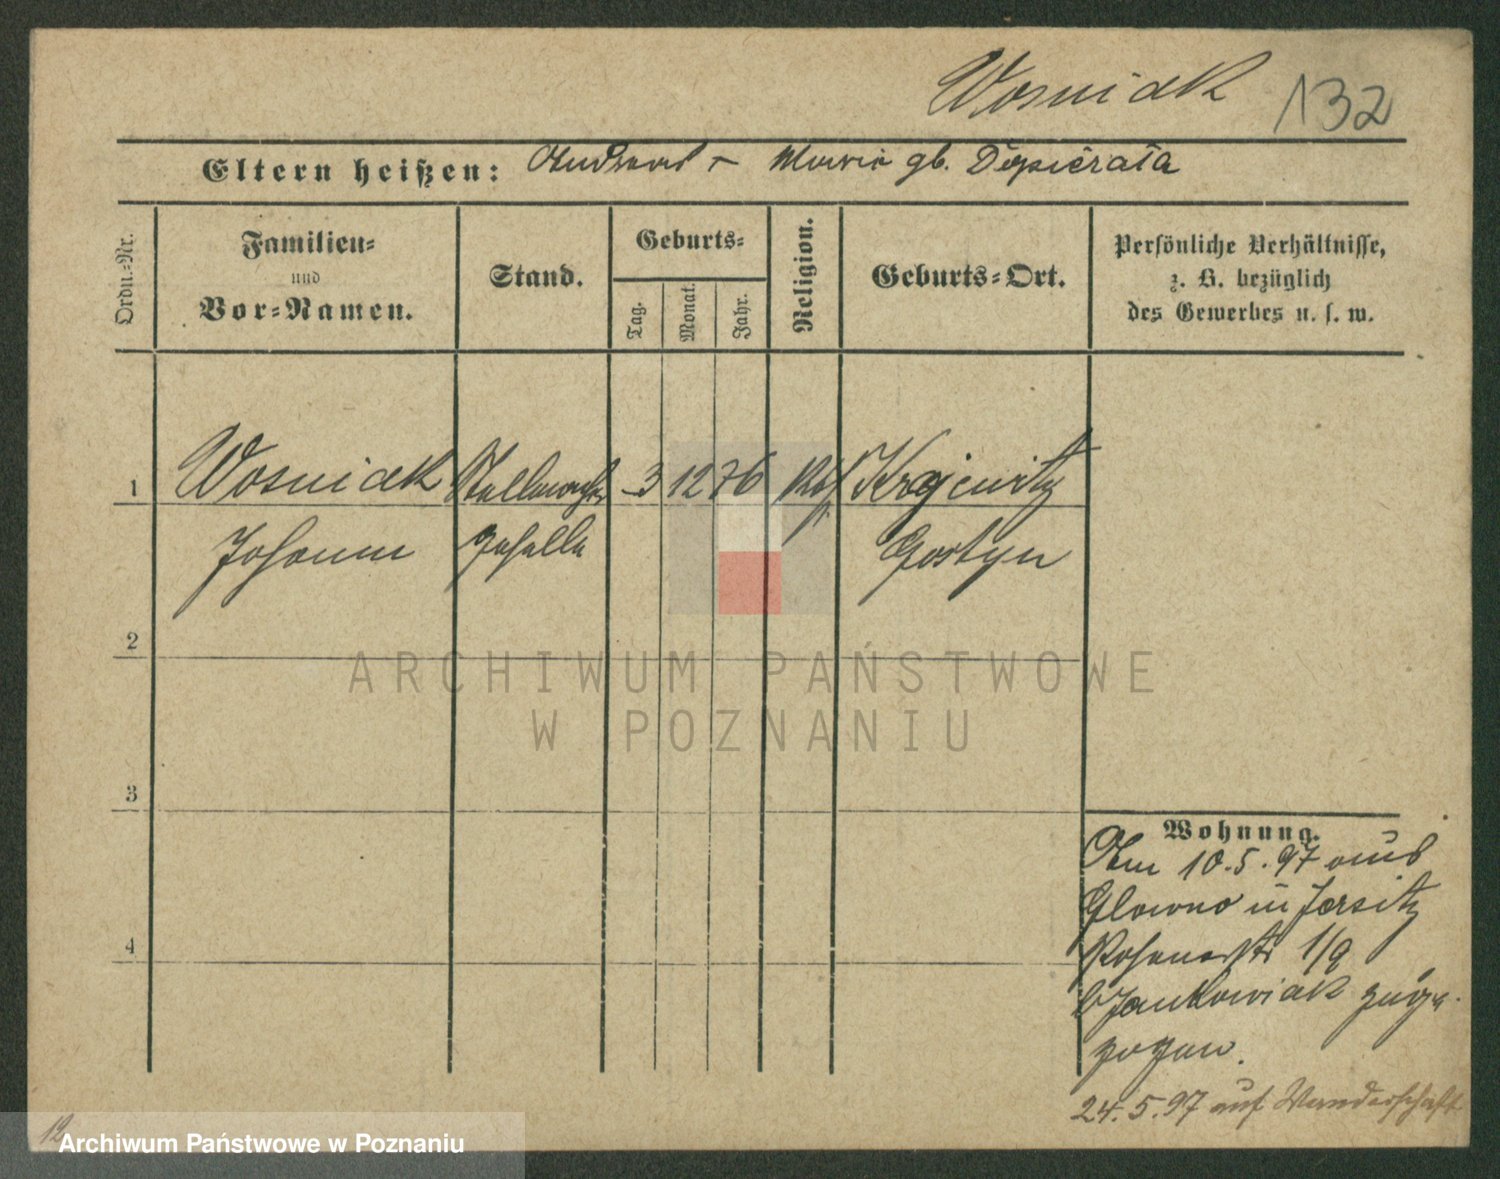 Wosniak 132
Eltern heißen: Andreas – Maria gb. Dopierała
Ordn.-Nr.
Familien-
und
Vor-Namen.
Stand.
Geburts-
Tag. Monat. Jahr.
Religion.
Geburts-Ort.
Persönliche Verhältnisse,
z. B. bezüglich
des Gewerbes u. s. w.
1 Wosniak Stellmacher 3 12 76 Kath Krajewitz
Johann geselle Gostyn
2
3
4
Wohnung.
Am 10.5.97 aus
Glowno in Jersitz
Rosenerstr 1/9
b Jankowiak zuge-
zogen.
24.5.97 auf Wanderschaft
12
ARCHIWUM PAŃSTWOWE
W POZNANIU
Archiwum Państwowe w Poznaniu